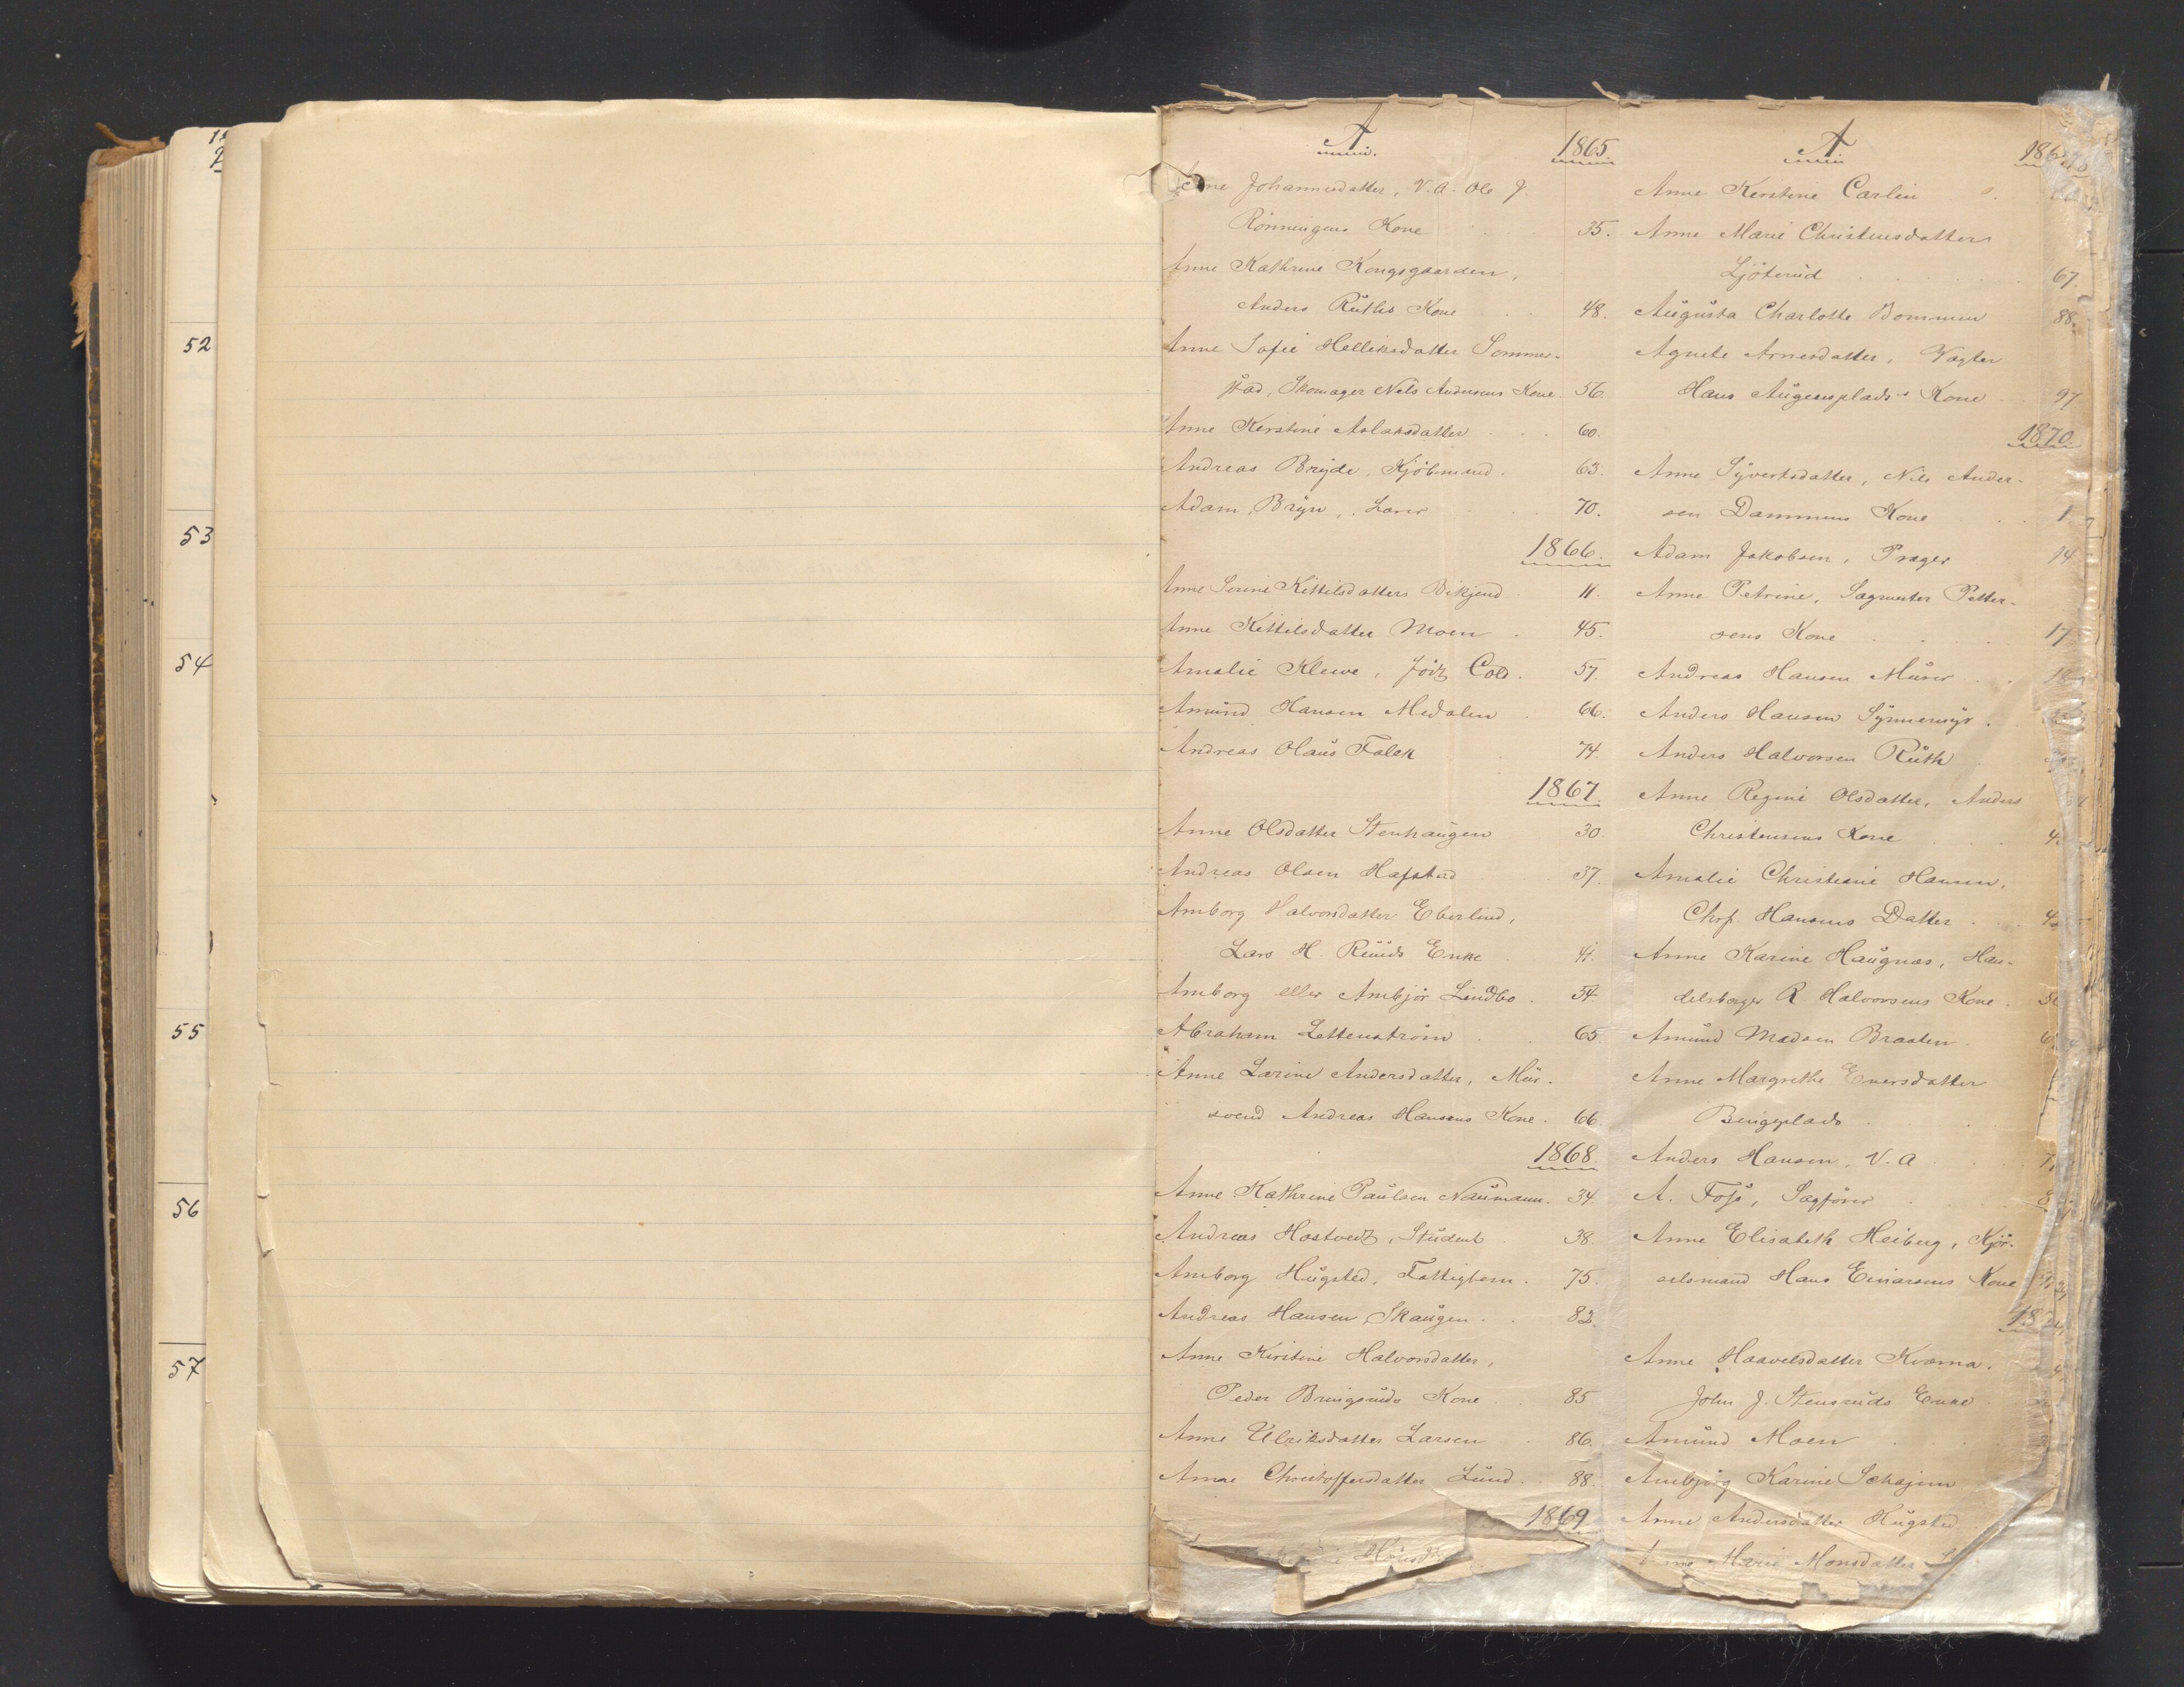 52
53
54
55
56
57
A
1865
Anne Johannesdatter, V. A. Ole J.
Rönningens Kone 35.
Anne Kathrine Kongsgaarden,
Anders Rüths Kone 48.
Anne Sofie Helliksdatter Sommer-
stad, Skomager Nels Andersens Kone. 56.
Anne Kerstine Aslaksdatter 60.
Andreas Bryde, Kjöbmand. 63.
Adam Bryn, 70.
1866.
Anne Serine Kittilsdatter 11.
Anne Kittilsdatter Moen 45.
Amalie Klewe, Cold. 57.
Amund Hansen Medalen 66.
Andreas Olaus Falck 74.
1867.
Anne Olsdatter Stenhaugen 30.
Andreas Olsen Hafstad 37.
Amborg Halvorsdatter Eberlind,
Lars H. Ruuds Enke 41.
Amborg eller Ambjör Lindbo. 54.
Abraham Zettenström 65
Anne Larine Andersdatter, Mur-
svend Andreas Hansens Kone. 66.
1868.
Anne Kathrine Paulsen Naumann. 34.
Andreas Hostvedt, Student 38.
Amborg Hugsted, Fattiglem. 75.
Andreas Hansen Skaugen. 82.
Anne Kirstine Halvorsdatter,
Peder Bringsruds Kone 85
Anne Ulriksdatter Larsen 86.
Anne Christoffersdatter Lund. 88.
1869
A
186
Anne Kerstine Carlin
Anne Marie Christensdatter
Ljöterud 67.
Augusta Charlotte Bommen 88.
Agnete Arnesdatter, Vægter
Hans Augensplads's Kone 97
1870.
Anne Syvertsdatter, Nils Ander-
sen Dammens Kone 1
Adam Jakobsen, Præger 14
Anne Petrine, Sagmester Petter-
sens Kone 17
Andreas Hansen Murer 18
Anders Hansen
Anders Halvorsen Rüth
Anne Regine Olsdatter, Anders
Christensens Kone
Amalie Christiane Hansen,
Chrf. Hansens Datter
Anne Karine Haugnæs, Han-
delsborger R Halvorsens Kone.
Amund Madsen Braaten.
Anne Margrethe Enersdatter
Bingeplads
Anders Hansen, V. A
A. Foss, Sagförer
Anne Elisabeth Heiberg, Kjör-
selsmand Hans Einarsens Kone
18
Anne Haavelsdatter Kværna,
John J. Stensruds Enke
Amund Moen
Ambjörg Karine
Anne Andersdatter Hugsted
Anne Marie Monsdatter